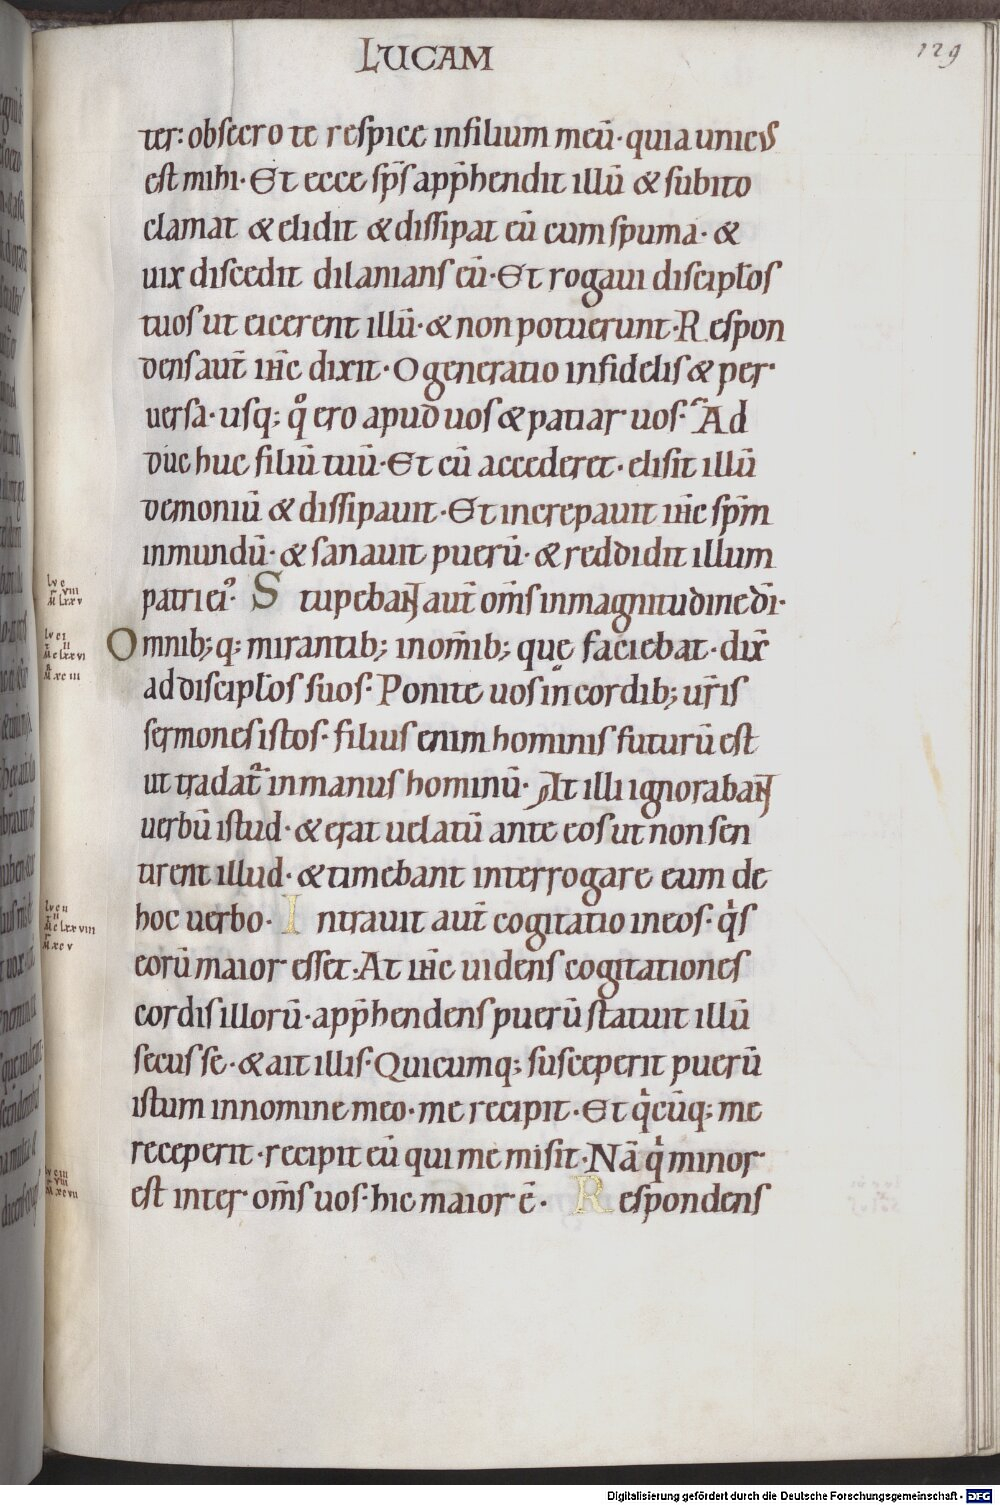 LUCAM
129
ter: obsecro te respice infilium meū· quia unicus
est mihi· Et ecce sp̄s app̄hendit illū & subito
clamat & elidit & dissipat eū cum spuma· &
uix discedit dilanians eū· Et rogaui discipłos
tuos ut eicerent illū· & non potuerunt· Respon
dens aut̄ ih̄c dixit· O generatio infidelis & per
uersa· usq; qͦ ero apud uos & patiar uos· Ad
duc huc filiū tuū· Et cū accederet· elisit illū
demoniū & dissipauit· Et increpauit ih̄c sp̄m
inmundū· & sanauit puerū· & reddidit illum
patri ei᾽· Stupebant aut̄ om̄s inmagnitudine dī·
Omnib; q; mirantib; inom̄ib; que faciebat· dix̄
ad discipłos suos· Ponite uos in cordib; ur̄is
sermones istos· filius enim hominis futurū est
ut tradat᷑ inmanus hominū· At illi ignorabant
uerbū istud· & erat uelatū ante eos ut non sen
tirent illud· & timebant interrogare eum de
hoc uerbo· Intrauit aut̄ cogitatio ineos· qͥs
eorū maior esset: At ih̄c uidens cogitationes
cordis illorū· app̄hendens puerū statuit illū
secus se· & ait illis· Quicumq; susceperit puerū
istum innomine meo· me recipit· Et qͥcūq; me
receperit· recipit eū qui me misit· Nā qͥ minor
est inter om̄s uos· hic maior ē· Respondens
Digitalisierung gefördert durch die Deutsche Forschungsgemeinschaft - DFG